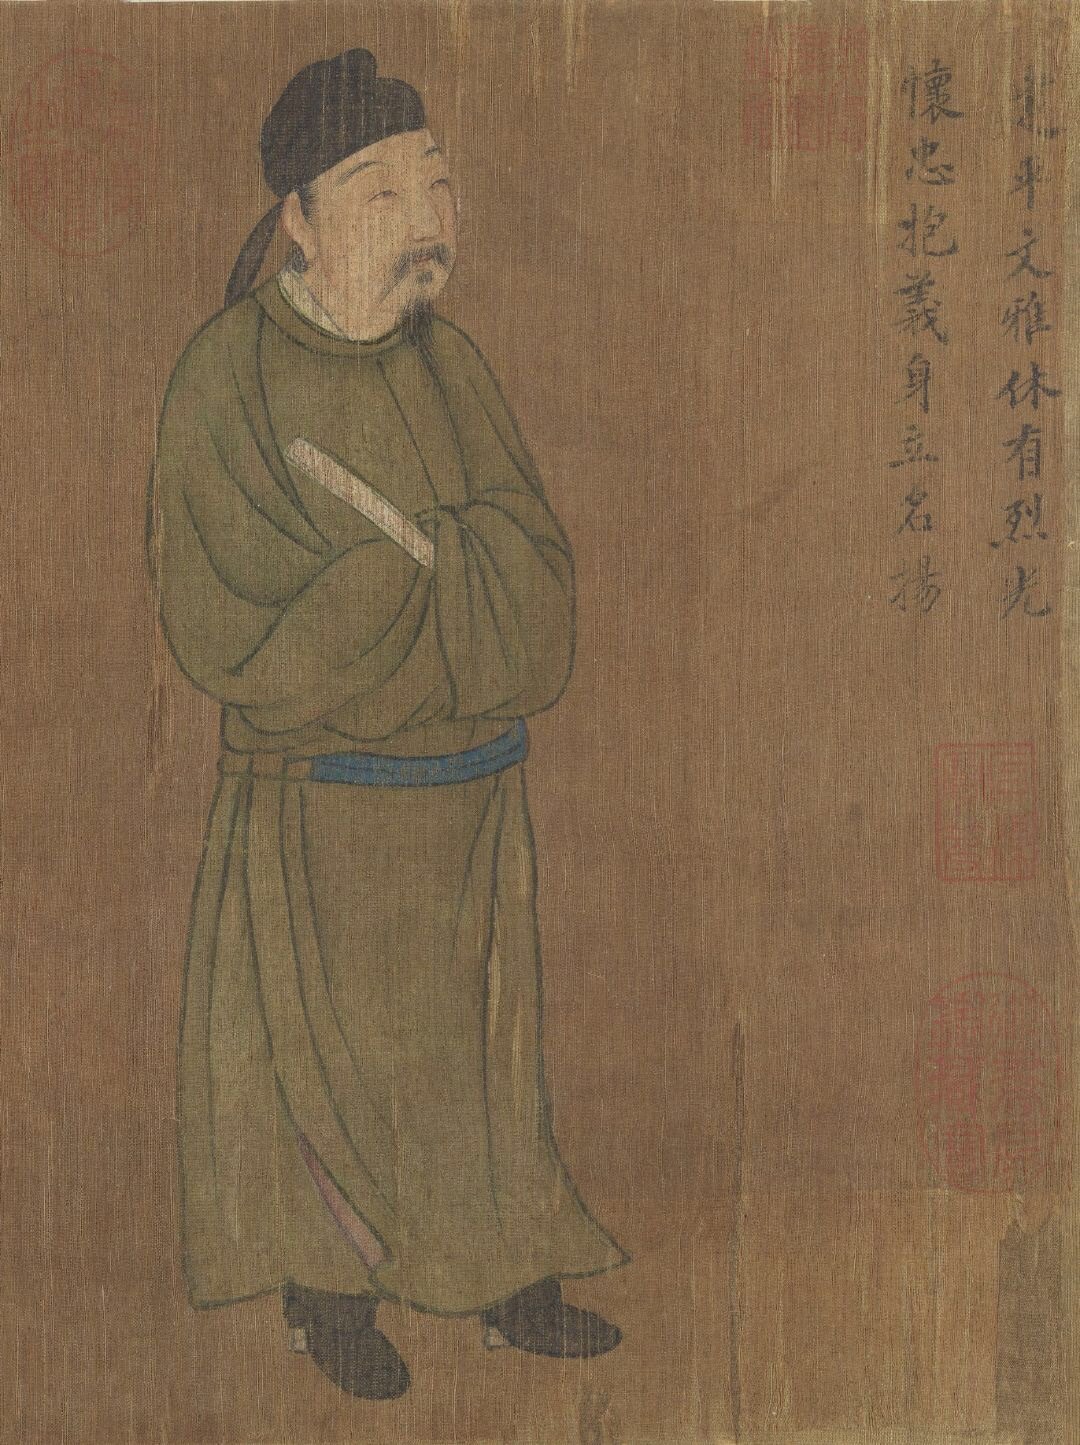 建平文雅休有烈光
懷忠抱義身立名揚